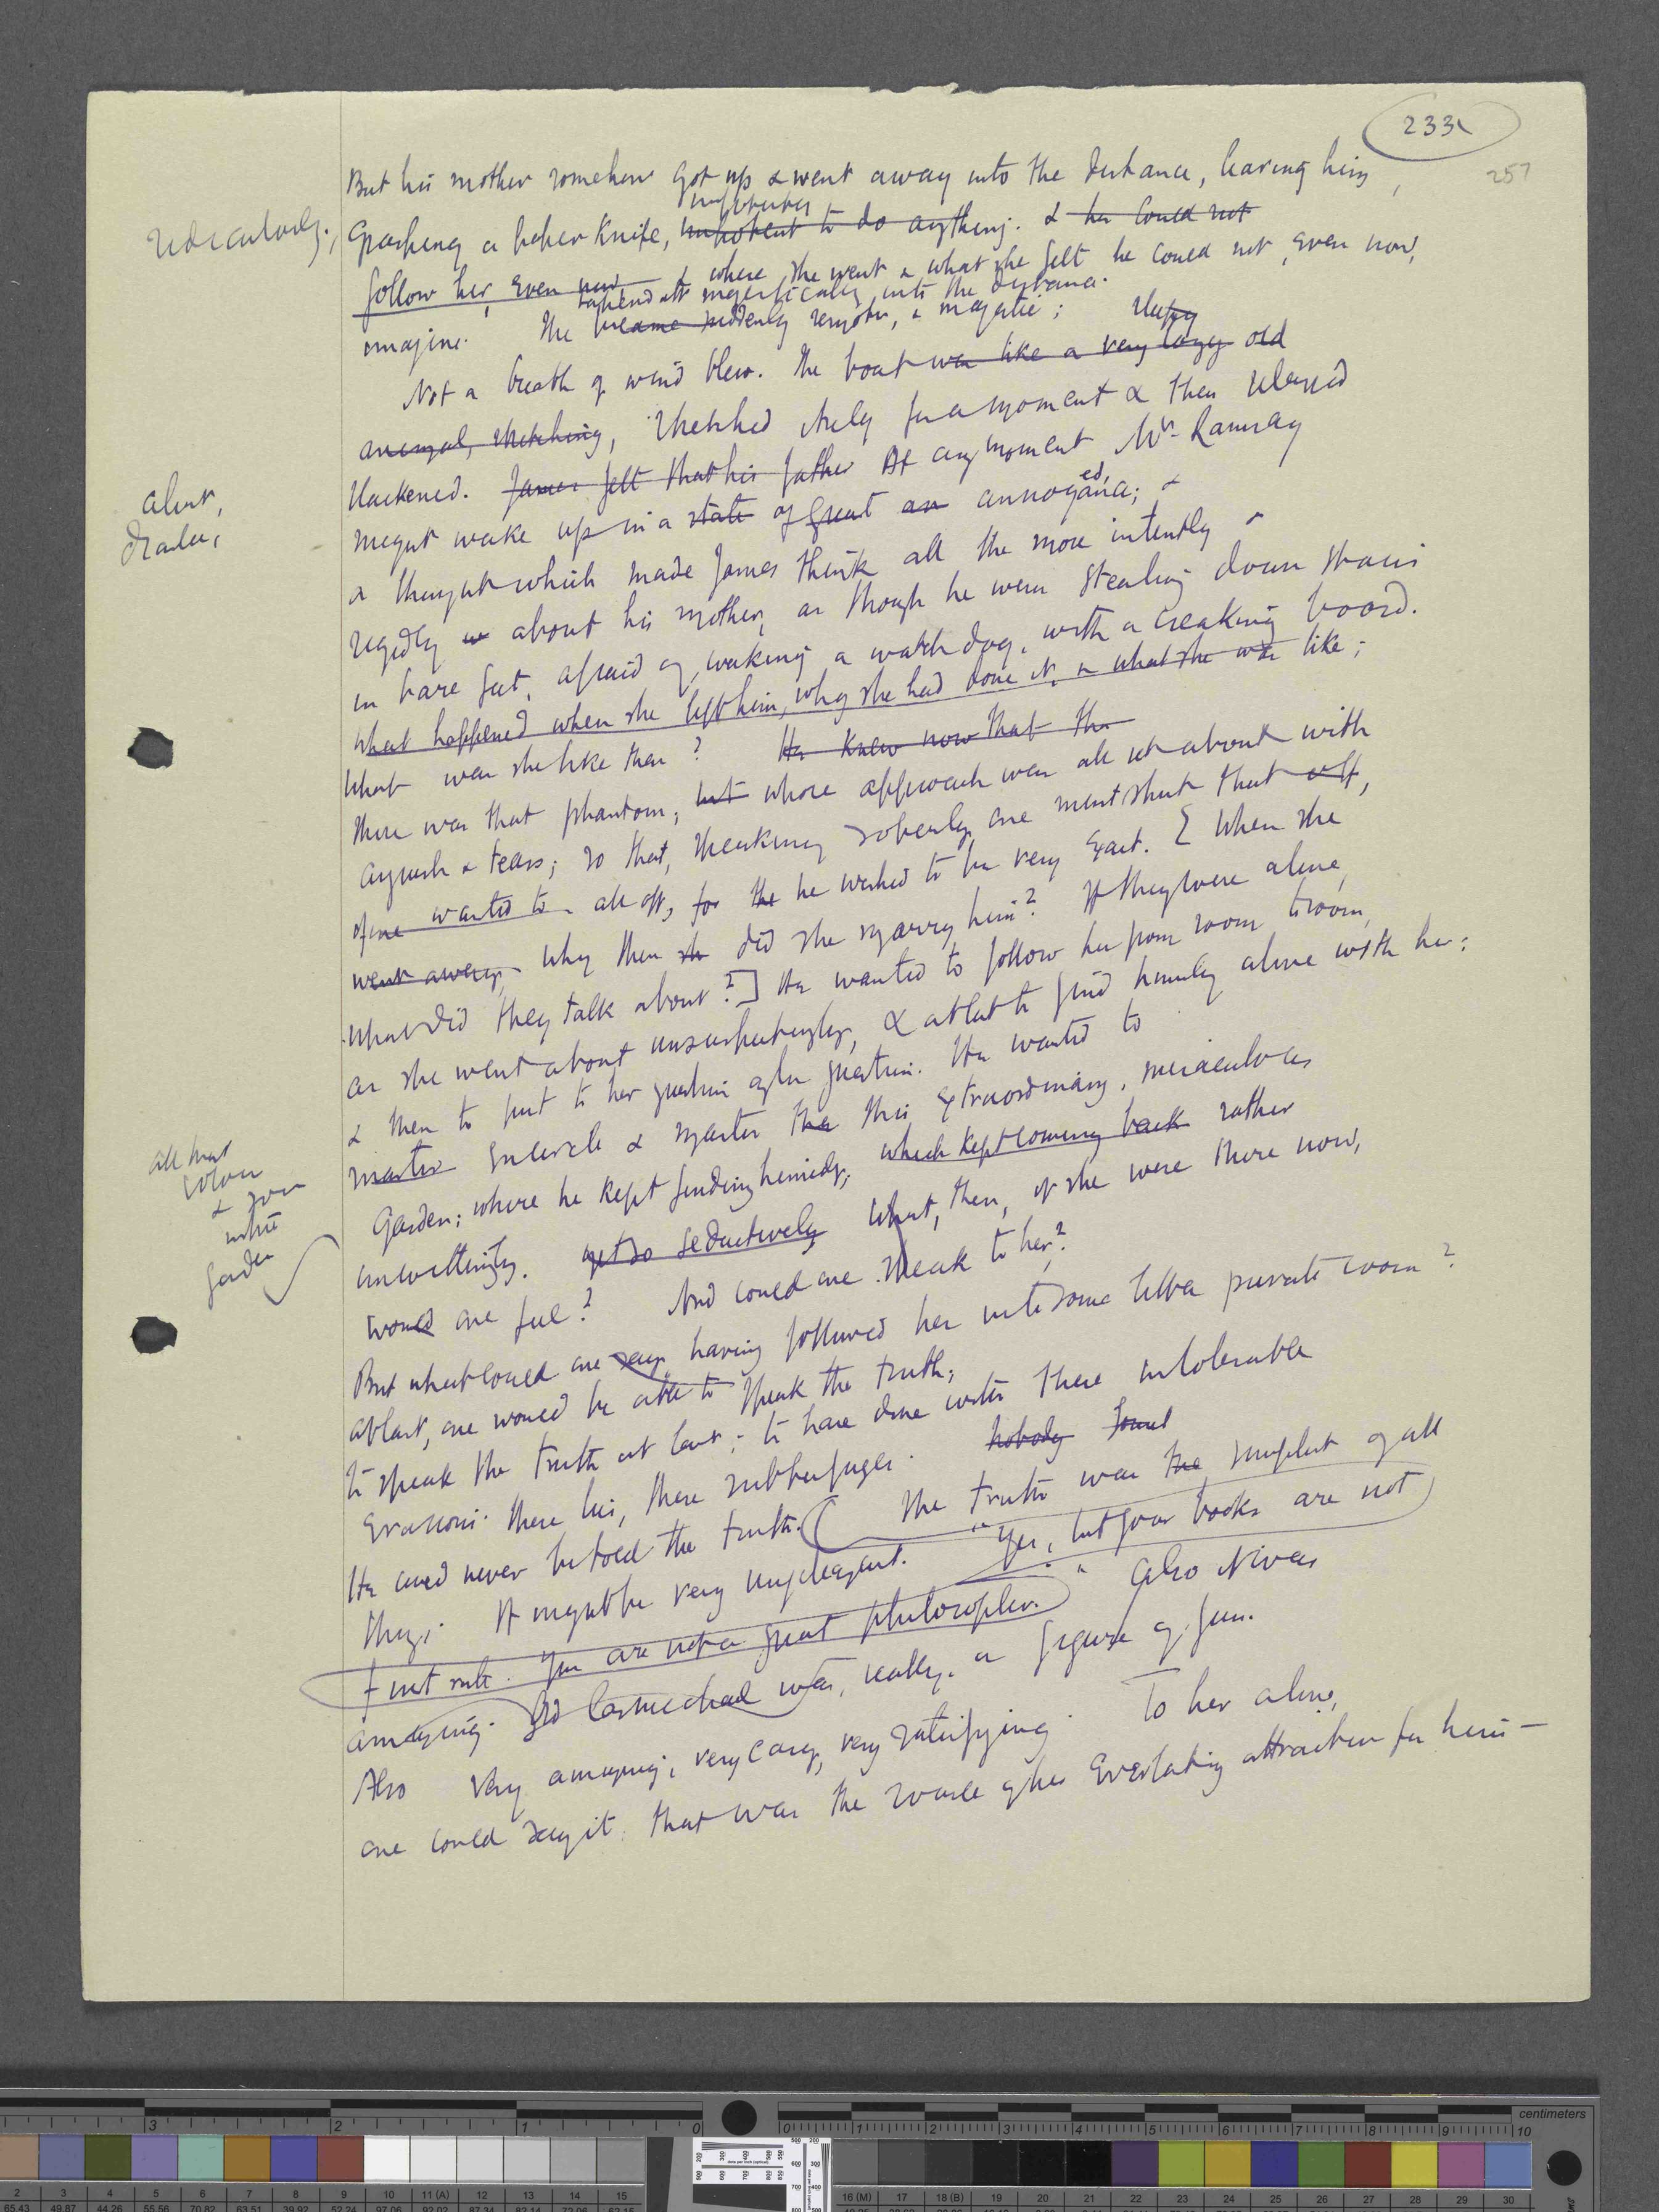 233
257
But his mother somehow got up & went away into the distance, leaving him,
ridiculously,
grasping a paper knife, impotent to do anything. & he could not
follow her, even now & where she went & what she felt he could not, even now,
majestically into the distance.
imagine. She became suddenly remote, & majestic;
Not a breath of wind blew. The boat was like a very lazy old
sleepy
animal, stretching, stretched itself for a moment & then relaxed
slackened. James felt that his father At any moment Mr. Ramsay
alert,
might wake up in a state of great an annoyance; &
ed,
a thought which made James think all the more intently &
rigidly about his mother, as though he were stealing down stairs
in bare feet, afraid of waking a watch dog, with a creaking board.
What happened when she left him, why she had done it, & what she was like;
What was she like then? He knew now that the
there was that phantom, but whose approach was all set about with
anguish & tears; so that, thinking soberly, one must shut that off,
if one wanted to - all off, for the he wished to be very exact. [ When she
went away, - Why then did she marry him? If they were alone,
what did they talk about?] He wanted to follow her from room to room,
as she went about unsuspectingly, & at last to find himself alone with her:
& then to put to her question after question. He wanted to
master encircle & master the this extraordinary, miraculous
all that
colour
&
in the
garden
garden; where he kept finding himself; which kept coming back rather
unwittingly. yet so seductively What, then, if she were there now,
would one feel? And could one speak to her?
But what could one say, having followed her into some little private room?
At last, one would be able to speak the truth;
to speak the truth at last; to have done with these intolerable
evasions. these lies, these subterfuges. nobody
He could never be told the truth. The truth was the simplest of all
things. It might be very unpleasant. "Yes, but your books are not
first rate. You are not a great philosopher." also
amusing. Old Carmichael was, really, a figure of fun.
Also very amusing; very easy, very satisfying. To her alone,
one could say it. that was the source of her everlasting attraction for him -